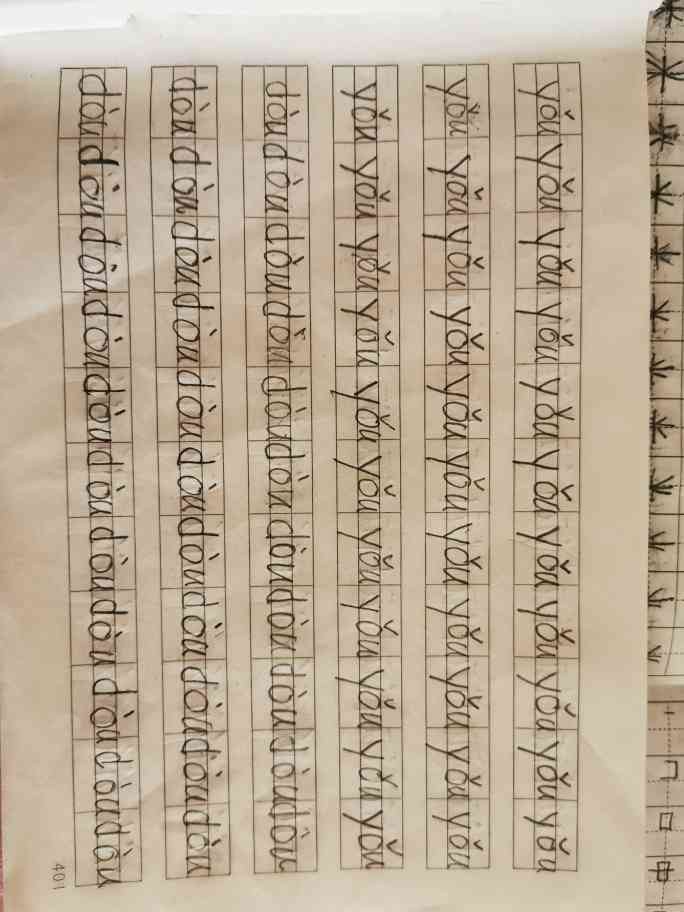 口 中
yǒu yǒu yǒu yǒu yǒu yǒu yǒu yǒu yǒu yǒu yǒu
yǒu yǒu yǒu yǒu yǒu yǒu yǒu yǒu yǒu yǒu yǒu
yǒu yǒu yǒu yǒu yǒu yǒu yǒu yǒu yǒu yǒu yǒu
dòu dòu dòu dòu dòu dòu dòu dòu dòu dòu dòu
dòu dòu dòu dòu dòu dòu dòu dòu dòu dòu dòu
dòu dòu dòu dòu dòu dòu dòu dòu dòu dòu dòu